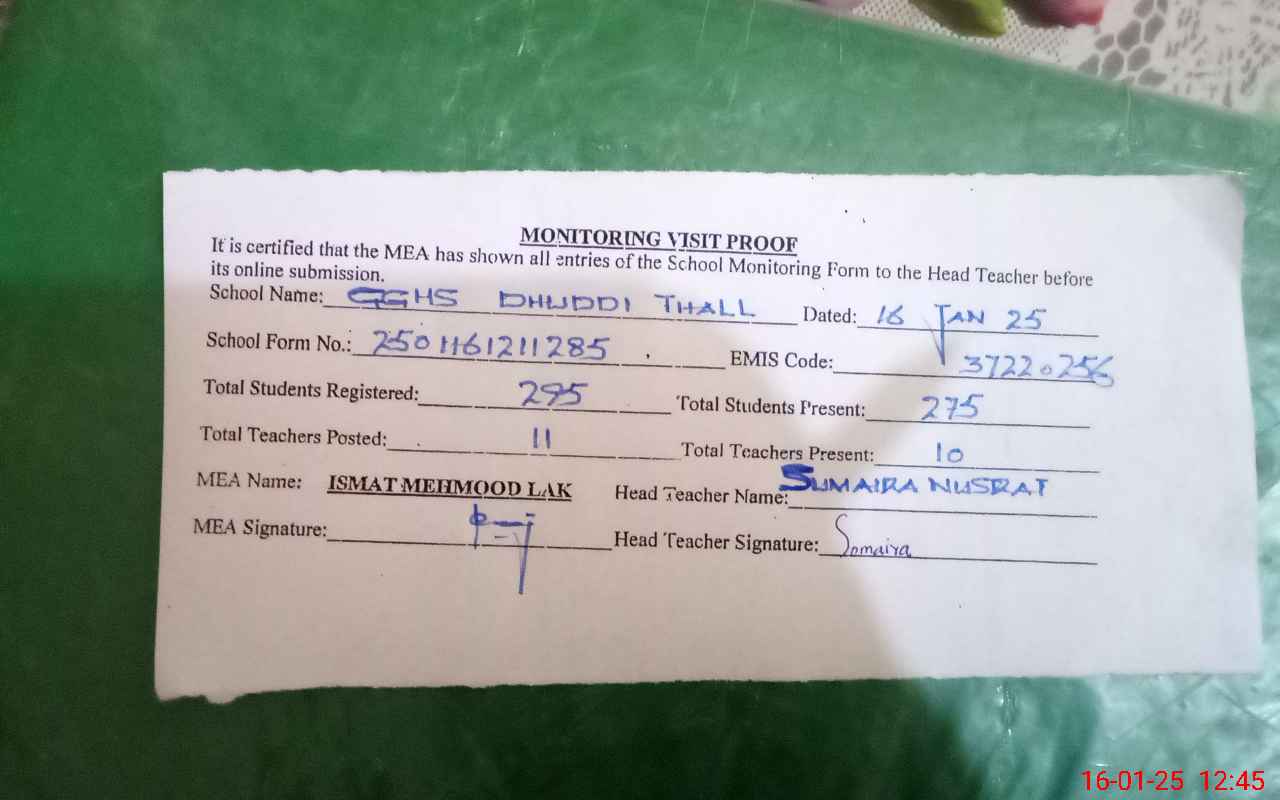 MONITORING VISIT PROOF
It is certified that the MEA has shown all entries of the School Monitoring Form to the Head Teacher before
its online submission.
School Name: GGHS DHUDDI THALL Dated: 16 JAN 25
School Form No.: 2501161211285 EMIS Code: 37220256
Total Students Registered: 295 Total Students Present: 275
Total Teachers Posted: 11 Total Teachers Present: 10
MEA Name: ISMAT MEHMOOD LAK Head Teacher Name: SUMAIRA NUSRAT
MEA Signature: Head Teacher Signature: Somaira
16-01-25 12:45